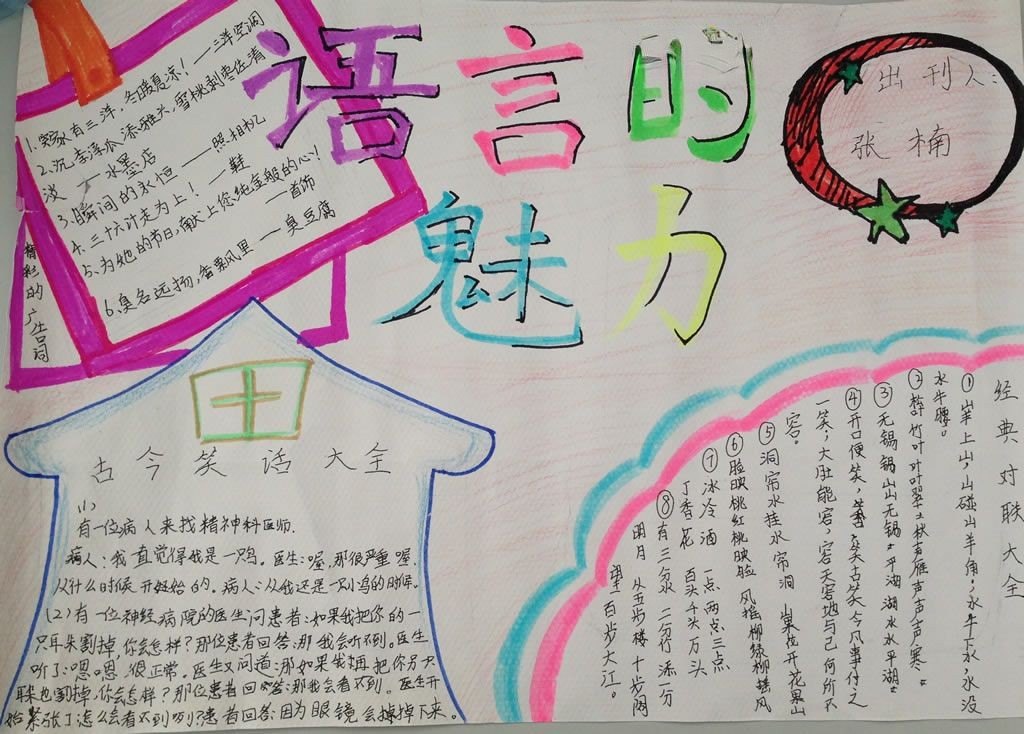 语言的
魅力
出刊人:
张楠
精彩的广告词
1.家有三洋,冬暖夏凉!——三洋空调
2.沉李浮瓜添雅兴,雪桃剥枣伍清
淡——水墨店
3.瞬间的永恒——照相机
4.三十六计走为上!——鞋
5.为她的节日,献上您纯金般的心!
——首饰
6.臭名远扬,香飘风里——臭豆腐
古今笑话大全
(1)
有一位病人来找精神科医师.
病人:我一直觉得我是一只鸟。医生:喔,那很严重喔
从什么时候开始给的。病人:从我还是一只小鸟的时候.
(2)有一位神经病院的医生问患者:如果我把你的一
只耳朵割掉,你会怎样?那位患者回答:那我会听不到。医生
听了:嗯嗯,很正常。医生又问道:那如果我再把你另一只
耳朵也割掉,你会怎样?那位患者回答:那我会看不到。医生开
始紧张了,怎么会看不到咧?患者回答:因为眼镜会掉掉下来。
经典对联大全
①山羊上山,山碰山羊角;水牛下水,水没
水牛腰。
②竹叶叶叶翠 秋声雁声声声寒
③无锡锡山山无锡 平湖湖水水平湖
④开口便笑,笑古笑今凡事付之
一笑;大肚能容,容天容地与己何所不
容。
⑤洞帘水挂水帘洞 山果花开花果山
⑥脸映桃红桃映脸 风摇柳绿柳摇风
⑦冰冷酒 一点两点三点
丁香花 百头千头万头
⑧有三分水 二分竹 添一分
明月 从五步楼 十步阁
望百步大江。